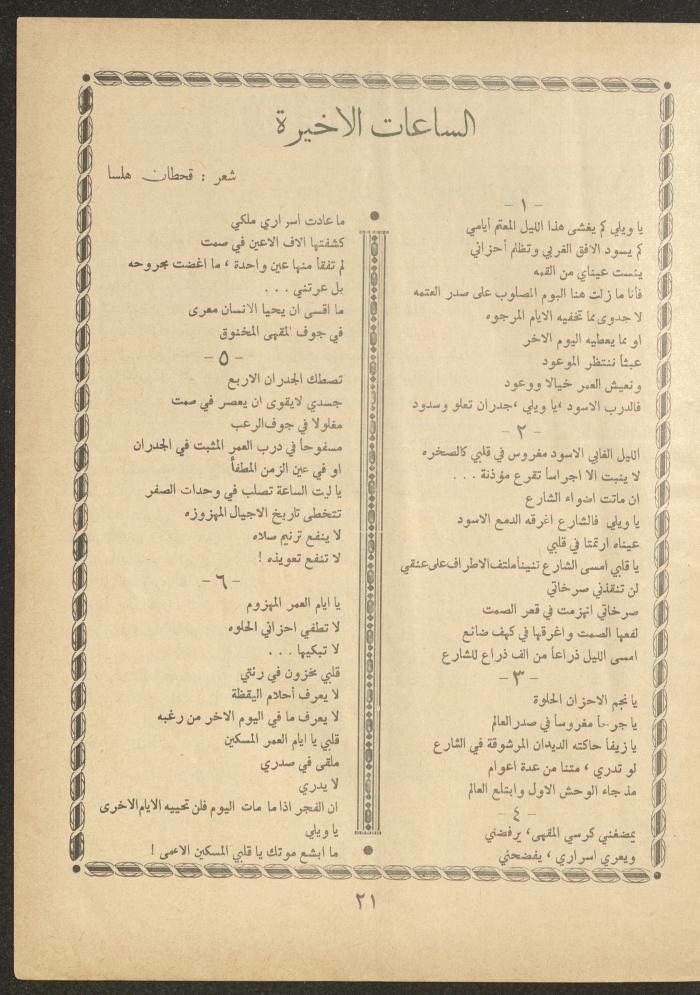 الساعات الاخيرة
شعر : قحطان هلسا
- ١ -
يا ويلي كم يغشى هذا الليل المعتم أيامي
كم يسود الافق الغربي وتظلم أحزاني
يئست عيناي من القمه
فأنا ما زلت هنا البوم المصلوب على صدر العتمه
لا جدوى مما تخفيه الايام المرجوه
او مما يعطيه اليوم الاخر
عبثاً ننتظر الموعود
ونعيش العمر خيالا ووعود
فالدرب الاسود ، يا ويلي ، جدران تعلو وسدود
- ٢ -
الليل الغابي الاسود مغروس في قلبي كالصخره
لا ينبت الا اجراساً تقرع مؤذنة . . .
ان ماتت اضواء الشارع
يا ويلي فالشارع اغرقه الدمع الاسود
عيناه ارتمتا في قلبي
يا قلبي امسى الشارع تنيناً ملتف الاطراف على عنقي
لن تنقذني صرخاتي
صرخاتي انهزمت في قعر الصمت
لفعها الصمت واغرقها في كهف ضائع
امسى الليل ذراعاً من الف ذراع للشارع
- ٣ -
يا نجم الاحزان الحلوة
يا جرحاً مغروساً في صدر العالم
يا زيفاً حاكته الديدان المرشوقة في الشارع
لو تدري ، متنا من عدة اعوام
مذ جاء الوحش الاول وابتلع العالم
- ٤ -
يمضغني كرسي المقهى ، يرفضني
ويعري اسراري ، يفضحني
ما عادت اسراري ملكي
كشفتها الاف الاعين في صمت
لم تفقأ منها عين واحدة ، ما اغضت بجروحه
بل عرتني . . .
ما اقسى ان يحيا الانسان معرى
في جوف المقهى المخنوق
- ٥ -
تصطك الجدران الاربع
جسدي لا يقوى ان يعصر في صمت
مغلولا في جوف الرعب
مسفوحاً في درب العمر المثبت في الجدران
او في عين الزمن المطفأ
يا ليت الساعة تصلب في وحدات الصفر
تتخطى تاريخ الاجيال المهزوزه
لا ينفع ترنيم صلاه
لا تنفع تعويذه !
- ٦ -
يا ايام العمر المهزوم
لا تطفي احزاني الحلوه
لا تبكيها . . .
قلبي مخزون في رئتي
لا يعرف أحلام اليقظة
لا يعرف ما في اليوم الاخر من رغبه
قلبي يا ايام العمر المسكين
ملقى في صدري
لا يدري
ان الفجر اذا ما مات اليوم فلن تحييه الايام الاخرى
يا ويلي
ما ابشع موتك يا قلبي المسكين الاعمى !
٢١